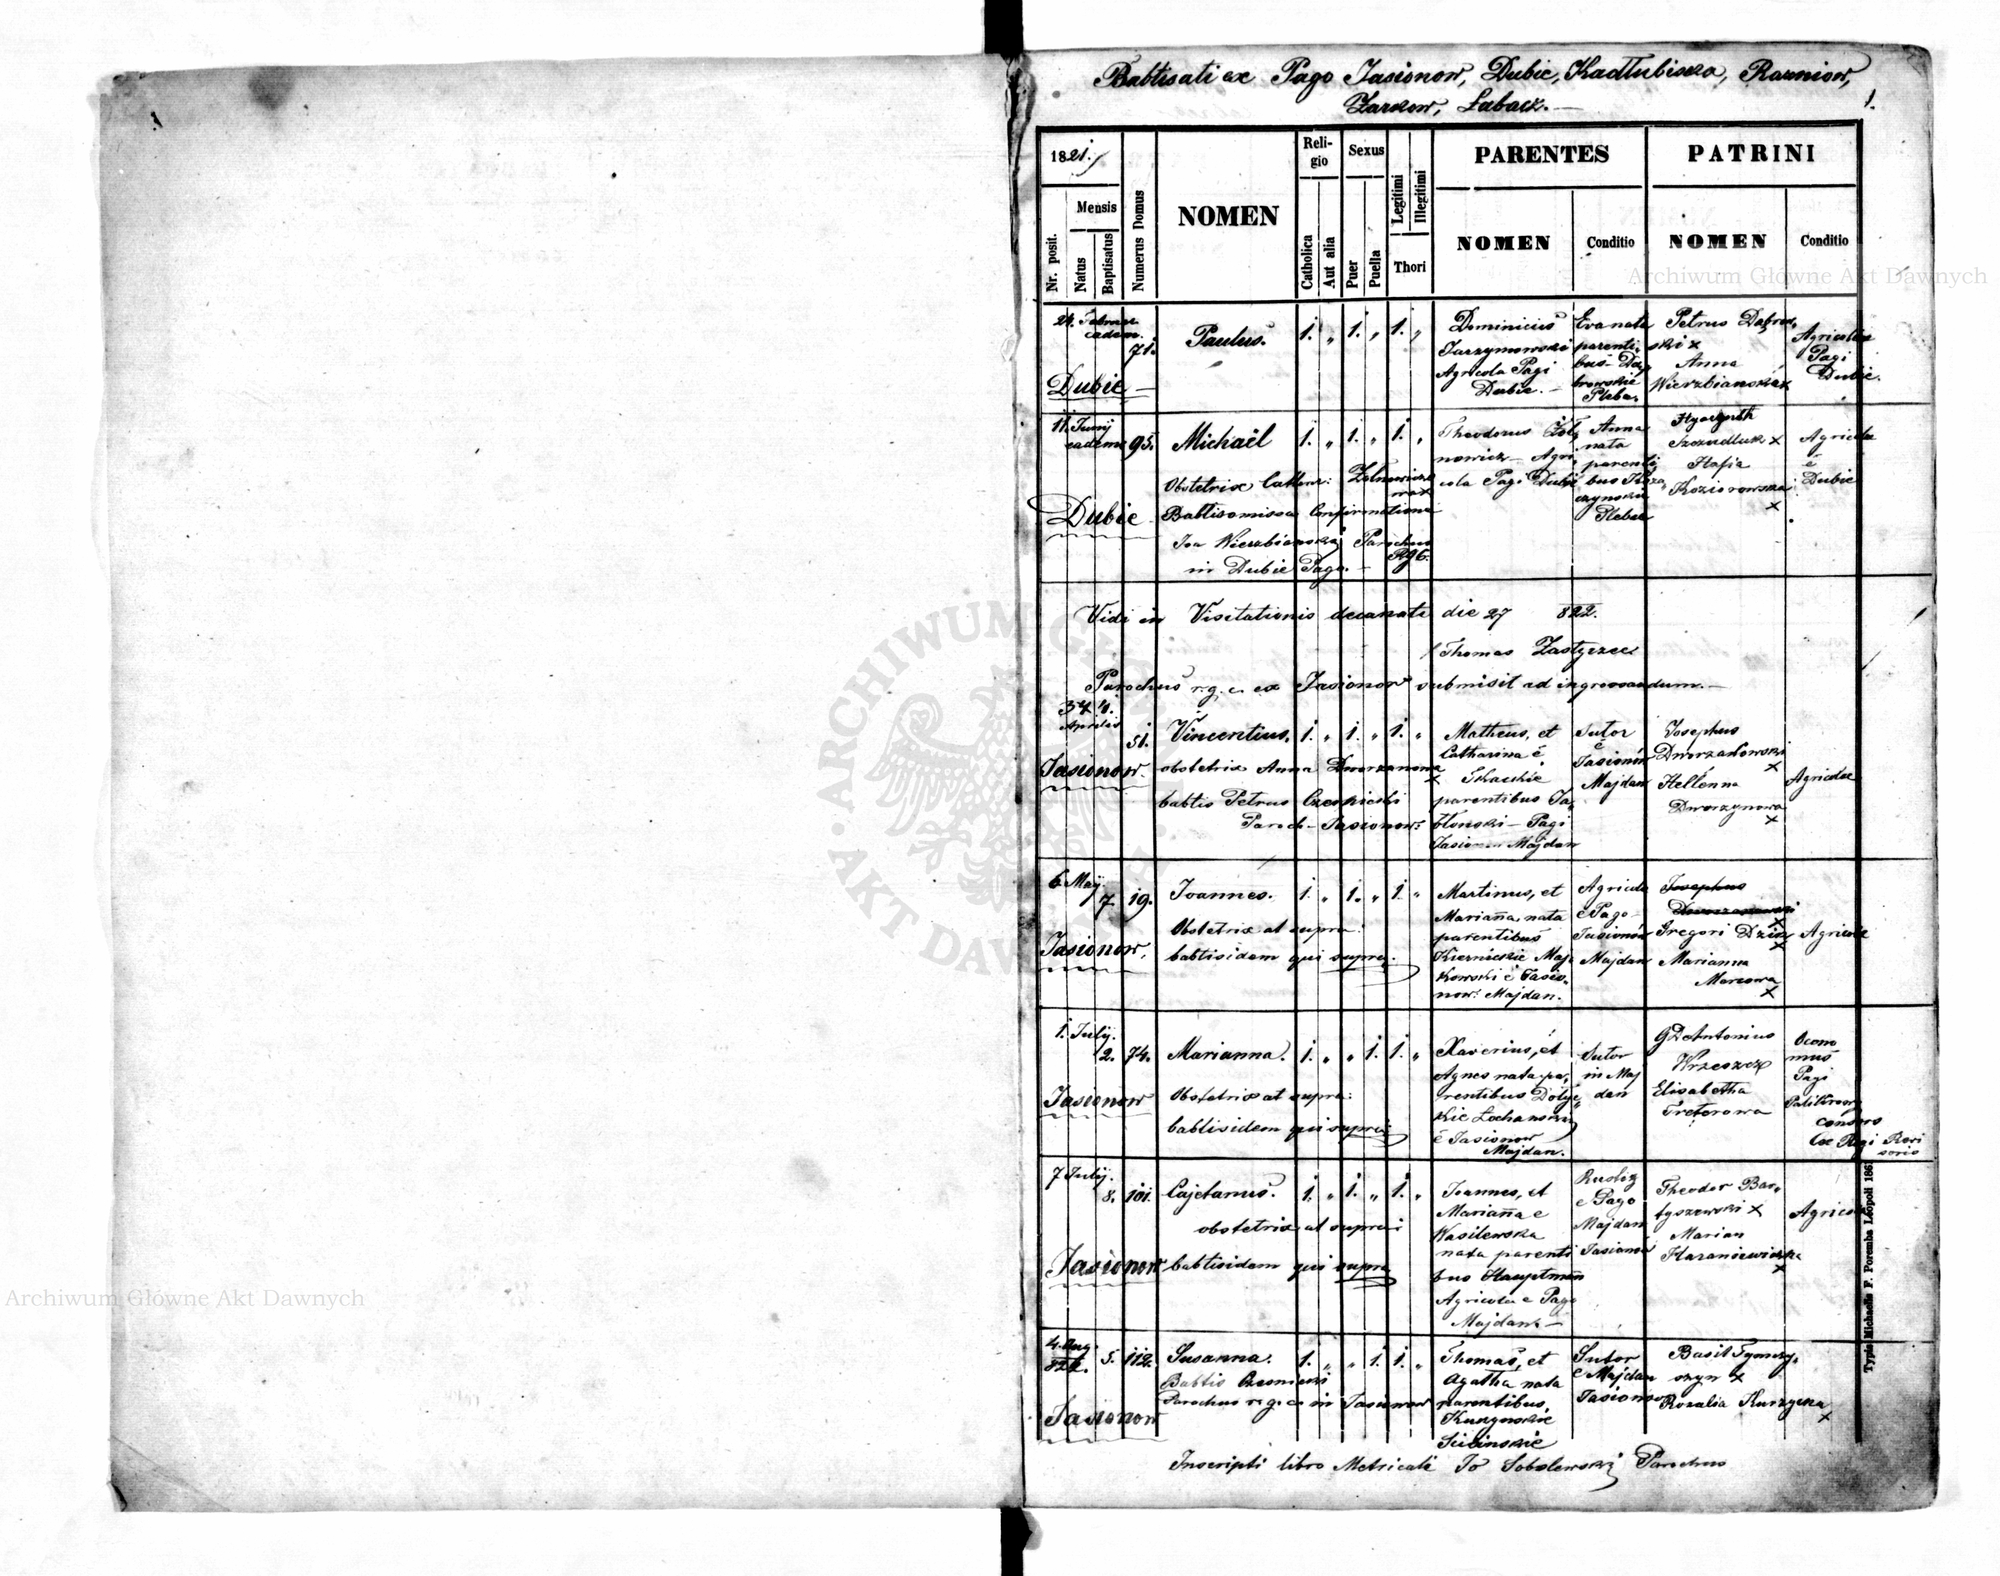 Babtisati ex Pago Jasionow, Dubie, Kadlubiska, Razniow,
Zarkow, Labacz.—
1.
1821.
Mensis
Nr. posit.
Natus
Baptisatus
Numerus Domus
NOMEN
Religio
Catholica
Aut alia
Sexus
Puer
Puella
Legitimi
Illegitimi
Thori
PARENTES
NOMEN
Conditio
PATRINI
NOMEN
Conditio
24.
eadem.
71.
Dubie
Paulus.
1. „ 1. „ 1. „
Dominicus
Jarzymowski
Agricola Pagi
Dubie.
Eva nata
parenti
bus Dą
browskie
Pleba.
Petrus Dabrow
ski x
Anna
Wierzbianska x
Agricolae
Pagi
Dubie.
11. Junij
eadem
95.
Dubie
Michaël
1. „ 1. „ 1. „
Obstetrix Cathar: Zolnowicz
owa x
Babtisomissa Confirmatione
Joa Wierzbianskij Parochus
Rgc.
in Dubie Pago.
Theodorus
nowicz Agri
cola Pagi Dubie
Anna
nata
parenti
bus
Plebae
Hyacynth
Szczudluk x
Hafia
Koziorowska
x
Agricolae
è
Dubie
Vidi in Visitationis decanali die 27 822.
Thomas
Parochus r.g.c. ex Jasionow submisit ad ingrossandum.
3 4.
Aprilis
51.
Jasionow.
Vincentius.
1. „ 1. „ 1. „
obstetrix Anna Dworzanowa
x
babtis Petrus
Paroch Jasionow:
Matheus, et
Catharina è
Tkackie
parentibus Ja
błonski Pagi
Jasionow Majdan
Sutor
è
Jasionów
Majdan
Josephus
Dworzanowski
x
Hellenna
Dworzynowa
x
Agricolae
6. Maij.
7.
19.
Jasionow.
Joannes.
1. „ 1. „ 1. „
Obstetrix at supra.
babtisidem qui supra.
Martinus, et
Marianna nata
parentibus
Kiernickie Maj
kowski è Jasio
now: Majdan.
Agricola
è Pago
Jasionów
Majdan
Josephus
Dworzanowski
x
Gregori
x
Marianna
Marcowa
x
Agricolae
1. July.
2.
74.
Jasionow
Marianna.
1. „ „ 1. 1. „
Obstetrix at supra:
babtisidem qui supra
Xaverius, et
Agnes nata pa
rentibus
kie Lochanski
è Jasionow
Majdan.
Sutor
in Maj
dan
GD Antonius
Krzeszcz
Elisabetha
Tretorowa
Oecono
mus
Pagi
Palikrowy
consors
ex Pagi
7 July.
8.
101.
Jasionow
Cajetanus.
1. „ 1. „ 1. „
obstetrix at supra
babtisidem qui supra
Joannes, et
Marianna e
Wasilewska
nata parenti
bus Hauptman
Agricola e Pago
Majdan.
e Pago
Majdan
Jasionów
Theodor Bar
tyszewski x
Marian
Haraniewiczka
x
Agricola
4. Aug.
5.
112.
Jasionow
Susanna.
1. „ „ 1. 1. „
Babtis
Parochus r.g.c. in Jasionow
Thomas, et
Agatha nata
parentibus
Sutor
è Majdan
Jasionow
Basil Tymczy
szyn x
Rozalia Kurzycka
x
Inscripti libro Metricali Jo Sobolewskij Parochus
Typis Michaelis F. Poremba Leopoli 186
Archiwum Główne Akt Dawnych
Archiwum Główne Akt Dawnych
ARCHIWUM GŁÓWNE AKT DAWNYCH